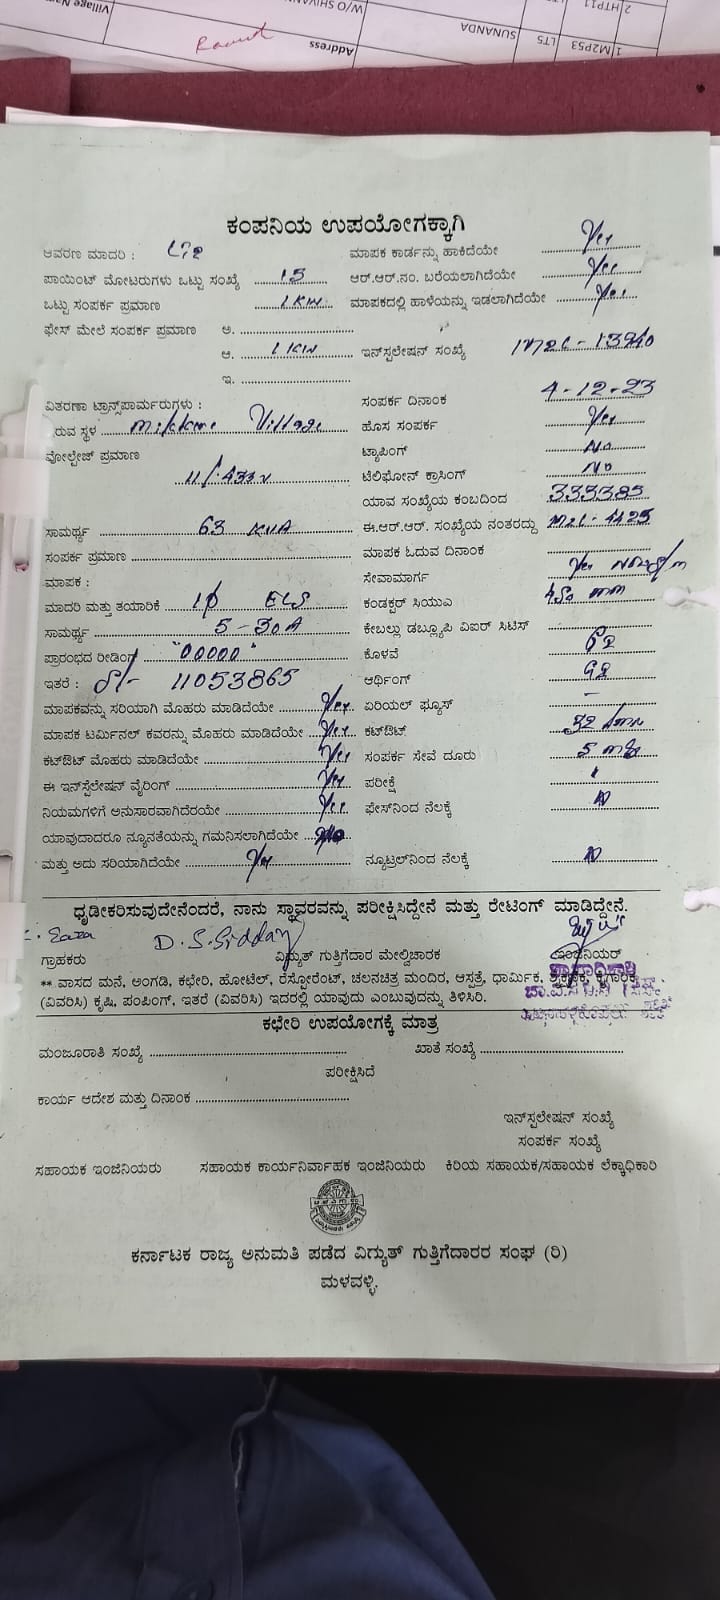 Village
W/O SHIVAN
2 HTP11
Address
SUNANDA
LT5
1 M2P53
ಕಂಪನಿಯ ಉಪಯೋಗಕ್ಕಾಗಿ
ಆವರಣ ಮಾದರಿ : ಮಾಪಕ ಕಾರ್ಡನ್ನು ಹಾಕಿದೆಯೇ Yes
ಪಾಯಿಂಟ್ ಮೋಟರುಗಳು ಒಟ್ಟು ಸಂಖ್ಯೆ 15 ಆರ್.ಆರ್.ನಂ. ಬರೆಯಲಾಗಿದೆಯೇ Yes
ಒಟ್ಟು ಸಂಪರ್ಕ ಪ್ರಮಾಣ 1 KW ಮಾಪಕದಲ್ಲಿ ಹಾಳೆಯನ್ನು ಇಡಲಾಗಿದೆಯೇ Yes
ಫೇಸ್ ಮೇಲೆ ಸಂಪರ್ಕ ಪ್ರಮಾಣ ಅ.
ಆ. 1 KW ಇನ್‌ಸ್ಟಲೇಷನ್ ಸಂಖ್ಯೆ
ಇ.
ವಿತರಣಾ ಟ್ರಾನ್ಸ್‌ಪಾರ್ಮರುಗಳು : ಸಂಪರ್ಕ ದಿನಾಂಕ 4-12-23
ಇರುವ ಸ್ಥಳ Village ಹೊಸ ಸಂಪರ್ಕ Yes
ವೋಲ್ಟೇಜ್ ಪ್ರಮಾಣ 11/.433v ಟ್ಯಾಪಿಂಗ್ No
ಟೆಲಿಫೋನ್ ಕ್ರಾಸಿಂಗ್ No
ಯಾವ ಸಂಖ್ಯೆಯ ಕಂಬದಿಂದ 333385
ಸಾಮರ್ಥ್ಯ 63 KVA ಈ.ಆರ್.ಆರ್. ಸಂಖ್ಯೆಯ ನಂತರದ್ದು
ಸಂಪರ್ಕ ಪ್ರಮಾಣ ಮಾಪಕ ಓದುವ ದಿನಾಂಕ
ಮಾಪಕ : ಸೇವಾಮಾರ್ಗ
ಮಾದರಿ ಮತ್ತು ತಯಾರಿಕೆ 1ϕ ELS ಕಂಡಕ್ಟರ್ ಸಿಯುಎ
ಸಾಮರ್ಥ್ಯ 5-30A ಕೇಬಲ್ಲು ಡಬ್ಲ್ಯೂಪಿ ಏಐರ್ ಸಿಟಿಸ್
ಪ್ರಾರಂಭದ ರೀಡಿಂಗ್ "00000" ಕೊಳವೆ
ಇತರೆ : 11053865 ಆರ್ಥಿಂಗ್
ಮಾಪಕವನ್ನು ಸರಿಯಾಗಿ ಮೊಹರು ಮಾಡಿದೆಯೇ Yes ಏರಿಯಲ್ ಫ್ಯೂಸ್ –
ಮಾಪಕ ಟರ್ಮಿನಲ್ ಕವರನ್ನು ಮೊಹರು ಮಾಡಿದೆಯೇ Yes ಕಟ್‌ಔಟ್ 32
ಕಟ್‌ಔಟ್ ಮೊಹರು ಮಾಡಿದೆಯೇ Yes ಸಂಪರ್ಕ ಸೇವೆ ದೂರು 5
ಈ ಇನ್‌ಸ್ಟೆಲೇಷನ್ ವೈರಿಂಗ್ Yes ಪರೀಕ್ಷೆ
ನಿಯಮಗಳಿಗೆ ಅನುಸಾರವಾಗಿದೆರಯೇ Yes ಫೇಸ್‌ನಿಂದ ನೆಲಕ್ಕೆ
ಯಾವುದಾದರೂ ನ್ಯೂನತೆಯನ್ನು ಗಮನಿಸಲಾಗಿದೆಯೇ
ಮತ್ತು ಅದು ಸರಿಯಾಗಿದೆಯೇ Yes ನ್ಯೂಟ್ರಲ್‌ನಿಂದ ನೆಲಕ್ಕೆ
ಧೃಡೀಕರಿಸುವುದೇನೆಂದರೆ, ನಾನು ಸ್ಥಾವರವನ್ನು ಪರೀಕ್ಷಿಸಿದ್ದೇನೆ ಮತ್ತು ರೇಟಿಂಗ್ ಮಾಡಿದ್ದೇನೆ.
D. S. Siddaraj
ಗ್ರಾಹಕರು ವಿದ್ಯುತ್ ಗುತ್ತಿಗೆದಾರ ಮೇಲ್ವಿಚಾರಕ ಇಂಜಿನಿಯರ್
** ವಾಸದ ಮನೆ, ಅಂಗಡಿ, ಕಛೇರಿ, ಹೋಟೆಲ್, ರೆಸ್ಟೋರೆಂಟ್, ಚಲನಚಿತ್ರ ಮಂದಿರ, ಆಸ್ಪತ್ರೆ, ಧಾರ್ಮಿಕ,
(ವಿವರಿಸಿ) ಕೃಷಿ, ಪಂಪಿಂಗ್, ಇತರೆ (ವಿವರಿಸಿ) ಇದರಲ್ಲಿ ಯಾವುದು ಎಂಬುವುದನ್ನು ತಿಳಿಸಿರಿ.
ಕಛೇರಿ ಉಪಯೋಗಕ್ಕೆ ಮಾತ್ರ
ಮಂಜೂರಾತಿ ಸಂಖ್ಯೆ ಖಾತೆ ಸಂಖ್ಯೆ
ಪರೀಕ್ಷಿಸಿದೆ
ಕಾರ್ಯ ಆದೇಶ ಮತ್ತು ದಿನಾಂಕ
ಇನ್‌ಸ್ಟಲೇಷನ್ ಸಂಖ್ಯೆ
ಸಂಪರ್ಕ ಸಂಖ್ಯೆ
ಸಹಾಯಕ ಇಂಜಿನಿಯರು ಸಹಾಯಕ ಕಾರ್ಯನಿರ್ವಾಹಕ ಇಂಜಿನಿಯರು ಕಿರಿಯ ಸಹಾಯಕ/ಸಹಾಯಕ ಲೆಕ್ಕಾಧಿಕಾರಿ
ಕರ್ನಾಟಕ ರಾಜ್ಯ ಅನುಮತಿ ಪಡೆದ ವಿದ್ಯುತ್ ಗುತ್ತಿಗೆದಾರರ ಸಂಘ (ರಿ)
ಮಳವಳ್ಳಿ.